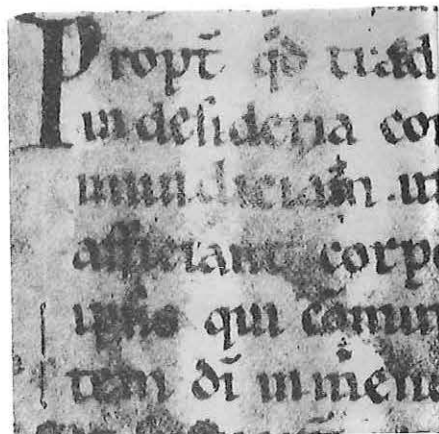 Propt̄ qd̄ trad
in desideria cor
inmundiciam ut
afficiant corpo
ipsis qui cōmut
tem dī in mend